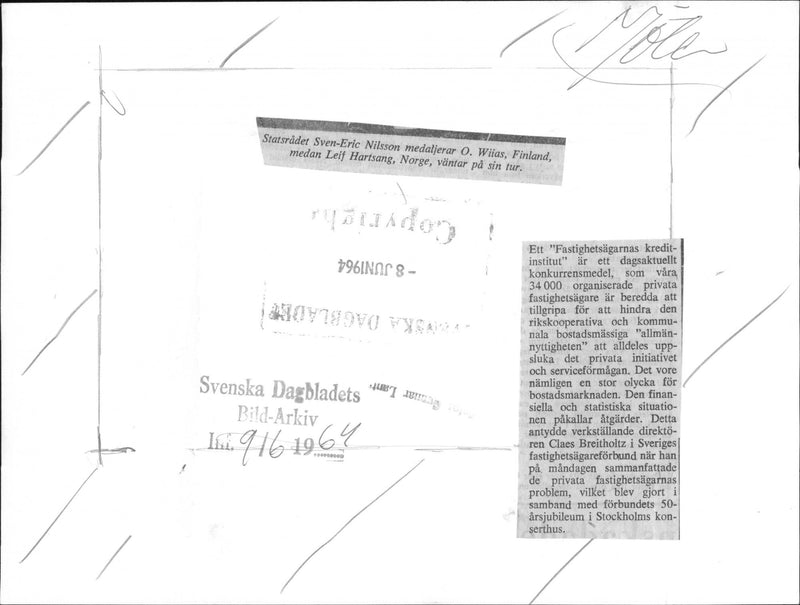 Möten
Statsrådet Sven-Eric Nilsson medaljerar O. Wiias, Finland,
medan Leif Hartsang, Norge, väntar på sin tur.
Copyright
- 8 JUNI 1964
SVENSKA DAGBLADET
Svenska Dagbladets
Bild-Arkiv
Ink. 9/6 1964
Ett "Fastighetsägarnas kredit-
institut" är ett dagsaktuellt
konkurrensmedel, som våra
34 000 organiserade privata
fastighetsägare är beredda att
tillgripa för att hindra den
rikskooperativa och kommu-
nala bostadsmässiga "allmän-
nyttigheten" att alldeles upp-
sluka det privata initiativet
och serviceförmågan. Det vore
nämligen en stor olycka för
bostadsmarknaden. Den finan-
siella och statistiska situatio-
nen påkallar åtgärder. Detta
antydde verkställande direktö-
ren Claes Breitholtz i Sveriges
fastighetsägareförbund när han
på måndagen sammanfattade
de privata fastighetsägarnas
problem, vilket blev gjort i
samband med förbundets 50-
årsjubileum i Stockholms kon-
serthus.